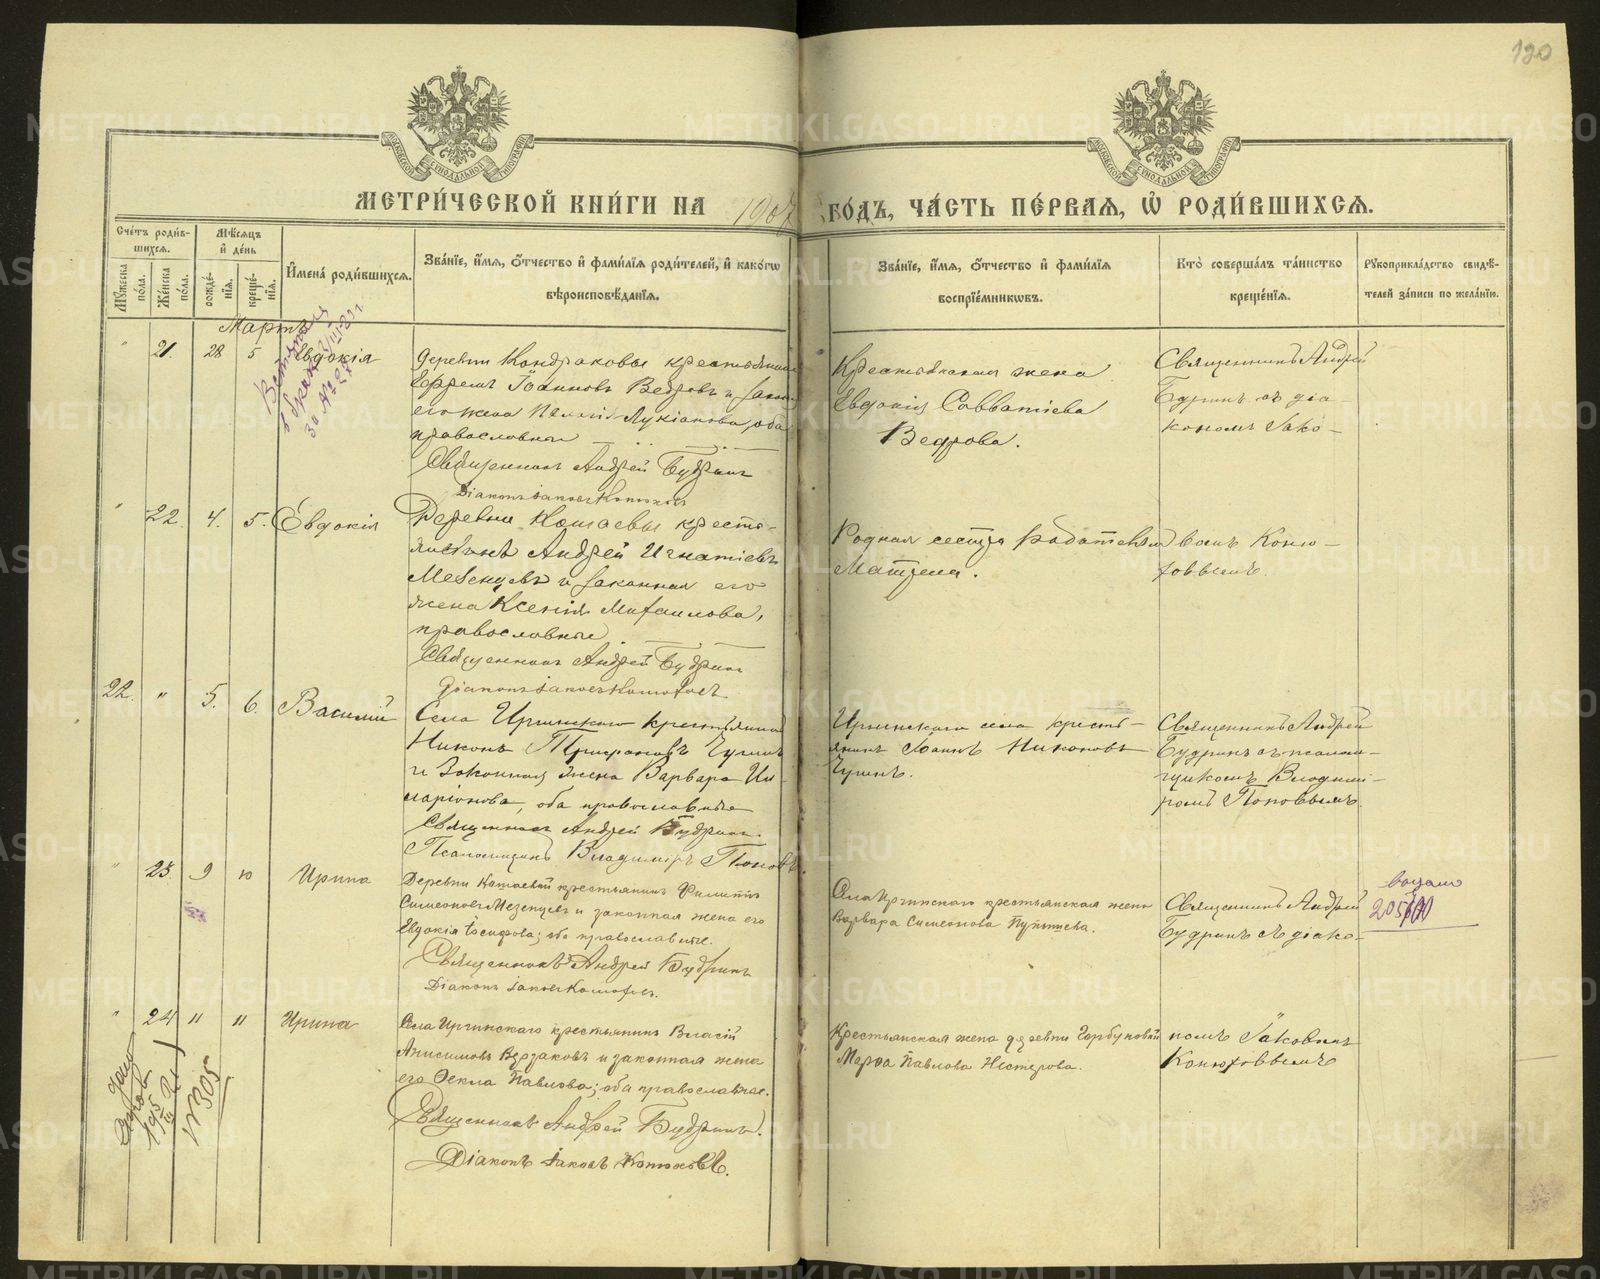 130
МОСКОВСКОЙ СѴНОДАЛЬНОЙ ТИПОГРАФІИ
МОСКОВСКОЙ СѴНОДАЛЬНОЙ ТИПОГРАФІИ
МЕТРИ́ЧЕСКОЙ КНИ́ГИ НА 1907 ГО́ДЪ, ЧА́СТЬ ПЕ́РВАѦ, Ѡ҆ РОДИ́ВШИХСѦ.
Сче́тъ роди́в-
шихсѧ.
Мѣ́сѧцъ
и҆ де́нь
Мꙋ́жеска по́ла.
Же́нска по́ла.
рожде́-нїѧ.
креще́-нїѧ.
И҆мена̀ роди́вшихсѧ.
Зва́нїе, и҆́мѧ, ѻ҆́тчество и҆ фами́лїѧ роди́телей, и҆ како́гѡ
вѣроисповѣ́данїѧ.
Зва́нїе, и҆́мѧ, ѻ҆́тчество и҆ фами́лїѧ
воспрїе́мникѡвъ.
Кто̀ соверша́лъ та́инство
креще́нїѧ.
Рꙋкоприкла́дство свидѣ́-
телей за́писи по жела́нїю.
Мартъ
" 21. 28 5 Евдокія
Деревни Кондраковы крестьянинъ
Ефремъ Іоанновъ Ведровъ и закон.
его жена Пелагія Лукіанова, оба
православные
Священникъ Андрей Будринъ
Діаконъ Іаковъ Конюховъ
Крестьянская жена
Евдокія Савватіева
Ведрова.
Священникъ Андрей
Будринъ съ діа-
кономъ Іако-
" 22. 4. 5. Евдокія
Деревни Кошаевы кресть-
янинъ Андрей Игнатіевъ
Мезенцевъ и законная его
жена Ксенія Михаилова,
православные
Священникъ Андрей Будринъ
Діаконъ Іаковъ Конюховъ
Родная сестра родителя
Матрена.
вомъ Коню-
ховымъ
22. " 5. 6. Василій
Села Иргинскаго крестьянинъ
Никонъ Трифановъ Чуринъ
и Законная жена Варвара Ил-
ларіонова, оба православные
Священникъ Андрей Будринъ.
Псаломщикъ Владимиръ Поповъ
Иргинскаго села кресть-
янинъ Іоаннъ Никоновъ
Чуринъ.
Священникъ Андрей
Будринъ съ псалом-
щикомъ Владими-
ромъ Поповымъ.
" 23. 9 10 Ирина
Деревни Кошаевой крестьянинъ Филиппъ
Симеоновъ Мезенцевъ и законная жена его
Евдокія Іосифова; оба православные.
Священникъ Андрей Будринъ
Діаконъ Іаковъ Конюховъ.
Села Иргинскаго крестьянская жена
Варвара Симеонова
Священникъ Андрей
Будринъ съ діако-
" 24 " " Ирина
Села Иргинскаго крестьянинъ Власій
Анисимовъ и законная жена
его Ѳекла Павлова; оба православные.
Священникъ Андрей Будринъ.
Діаконъ Іаковъ Конюховъ.
Крестьянская жена деревни Горбуновой
Марѳа Павлова Нестерова.
номъ Іаковымъ
Конюховымъ
№305
METRIKI.GASO-URAL.RU